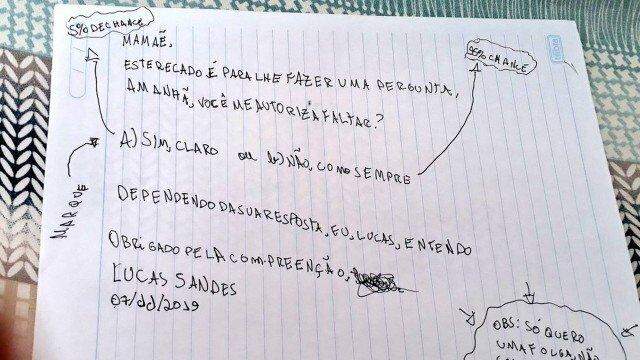 5% DE CHANCE
MAMAÊ,
95% CHANCE
ESTE RECADO É PARA LHE FAZER UMA PERGUNTA,
AMANHÃ, VOCÊ ME AUTORIZA FALTAR?
A) SIM, CLARO OU b) NÃO, COMO SEMPRE
MARQUE
DEPENDENDO DA SUA RESPOSTA, EU, LUCAS, ENTENDO
OBRIGADO PELA COMPREENÇÃO,
LUCAS SANDES
07/11/2019
OBS: SÓ QUERO
UMA FOLGA, NÃO